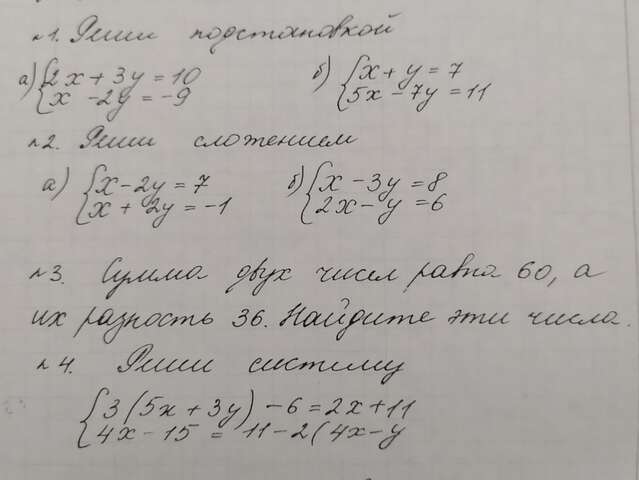 №1. Реши подстановкой
а) {2x + 3y = 10
x - 2y = -9
б) {x + y = 7
5x - 7y = 11
№2. Реши сложением
а) {x - 2y = 7
x + 2y = -1
б) {x - 3y = 8
2x - y = 6
№3. Сумма двух чисел равна 60, а
их разность 36. Найдите эти числа.
№4. Реши систему
{3(5x + 3y) - 6 = 2x + 11
4x - 15 = 11 - 2(4x - y